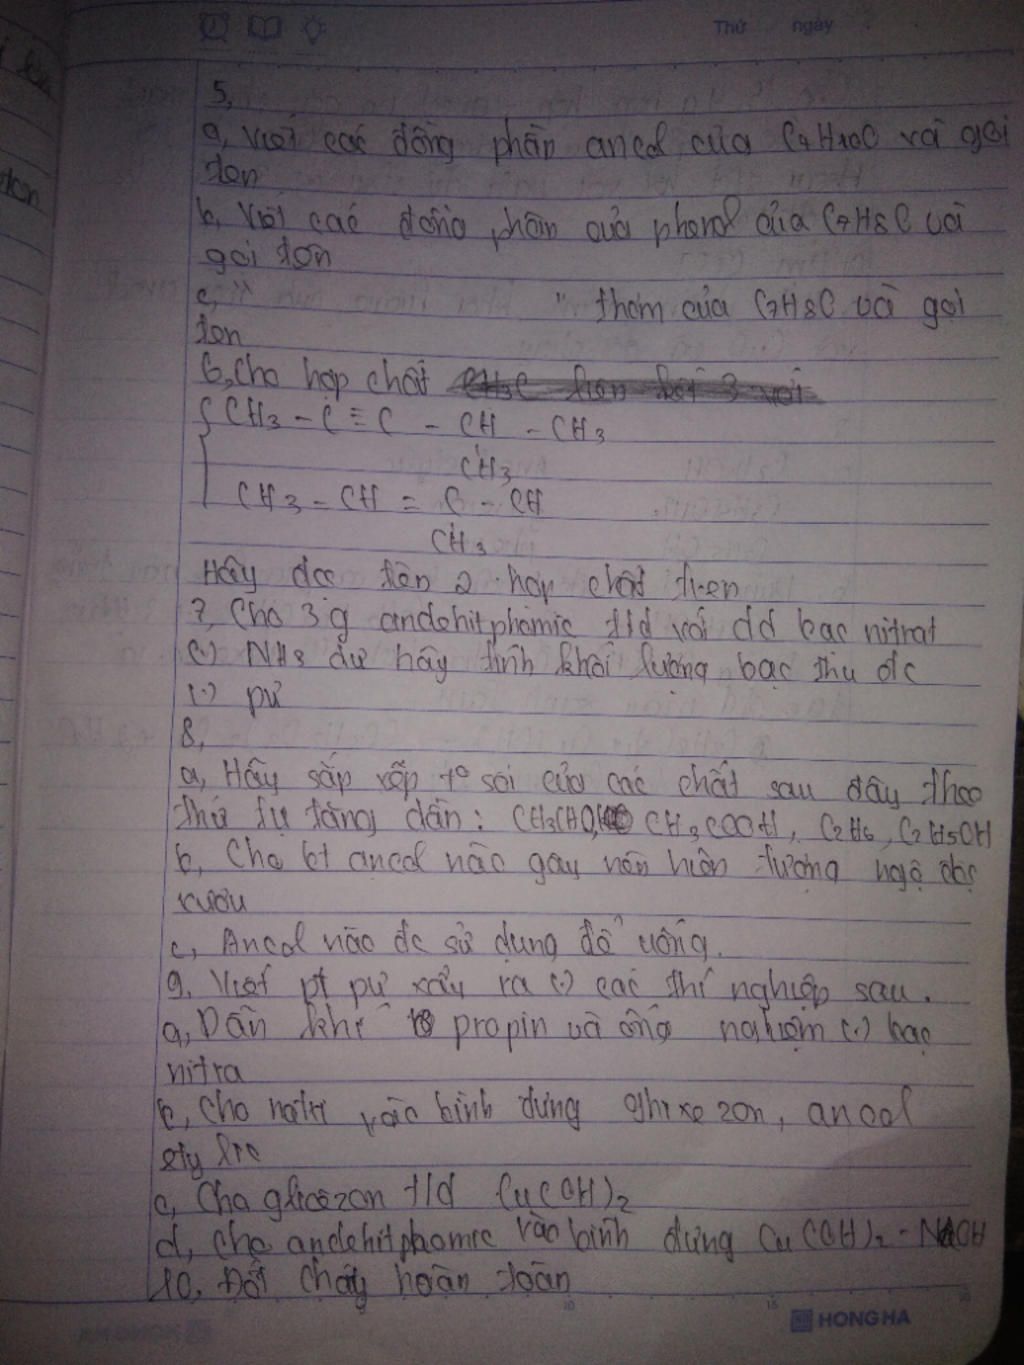 Thứ ngày
5,
a, Viết các đồng phân ancol của C4H10O và gọi
tên
b, Viết các đồng phân của phenol của C7H8O và
gọi tên
c, " " thơm của C7H8O và gọi
tên
6, Cho hợp chất
CH3 - C ≡ C - CH - CH3
CH3
CH3 - CH = C - CH
CH3
Hãy đọc tên 2 hợp chất trên
7, Cho 3g andehitphomic t/d với dd bac nitrat
(.) NH3 dư hãy tính khối lượng bạc thu đc
(.) pứ
8,
a, Hãy sắp xếp t° sôi của các chất sau đây theo
thứ tự tăng dần: CH3CHO, CH3COOH, C2H6, C2H5OH
b, Cho bt ancol nào gây nên hiện tượng ngộ độc
rượu
c, Ancol nào đc sử dụng đồ uống.
9, Viết pt pứ xảy ra (.) các thí nghiệp sau.
a, Dẫn khí propin và ống nghiệm (.) bạc
nitra
b, Cho natri vào bình đựng ghixezon, ancol
etylic
c, Cho glicezon t/d Cu(OH)2
d, cho andehitphomic vào bình đựng Cu(OH)2 - NaOH
10, Đốt cháy hoàn toàn
10 15 20
HONG HA